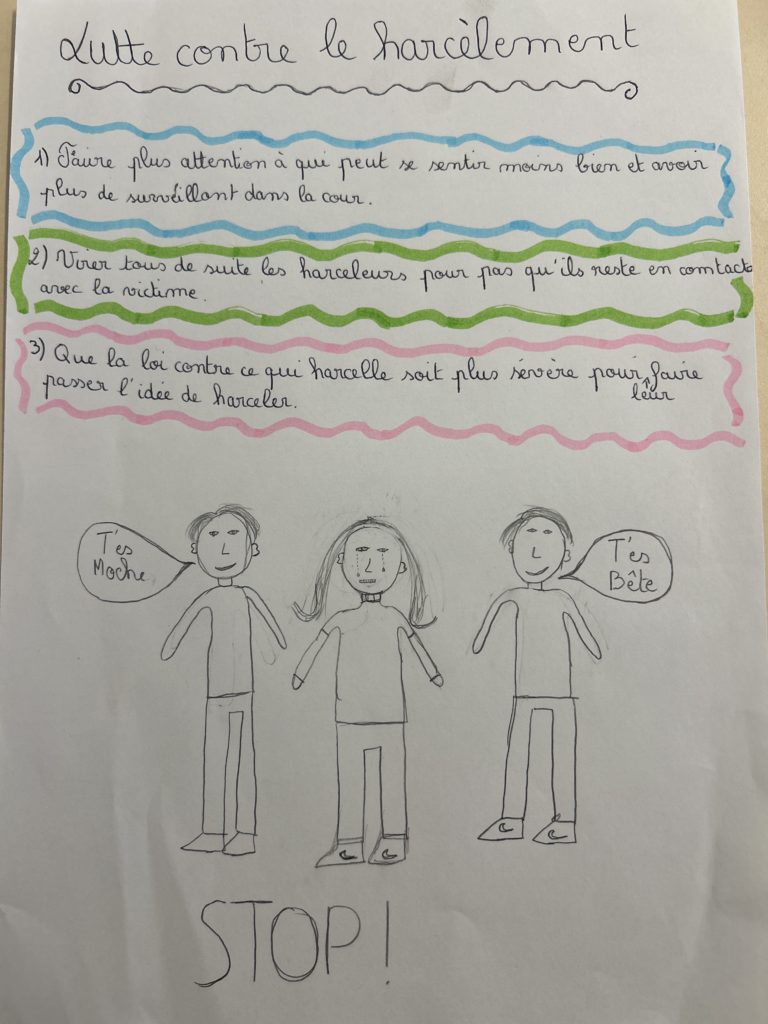 Lutte contre le harcèlement
1) Faire plus attention à qui peut se sentir moins bien et avoir
plus de survéillant dans la cour.
2) Virer tous de suite les harceleurs pour pas qu'ils reste en comtact
avec la victime.
3) Que la loi contre ce qui harcelle soit plus sévère pour leur faire
passer l'idée de harceler.
T'es
Moche
T'es
Bête
STOP!